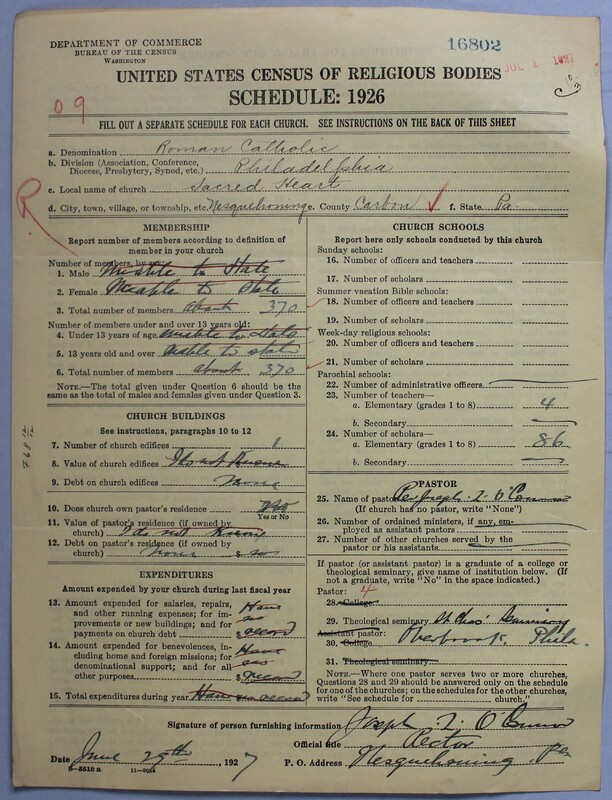 DEPARTMENT OF COMMERCE
BUREAU OF THE CENSUS
WASHINGTON
16802
JUL 1 1927
UNITED STATES CENSUS OF RELIGIOUS BODIES
SCHEDULE: 1926
09
FILL OUT A SEPARATE SCHEDULE FOR EACH CHURCH. SEE INSTRUCTIONS ON THE BACK OF THIS SHEET
a. Denomination Roman Catholic
b. Division (Association, Conference, Diocese, Presbytery, Synod, etc.) Philadelphia
c. Local name of church Sacred Heart
d. City, town, village, or township, etc. Nesquehoning e. County Carbon f. State Pa.
R
MEMBERSHIP
Report number of members according to definition of
member in your church
Number of members, by
1. Male Unable to State
2. Female Unable to State
3. Total number of members about 370
Number of members under and over 13 years old:
4. Under 13 years of age unable to State
5. 13 years old and over unable to state
6. Total number of members about 370
NOTE.—The total given under Question 6 should be
same as the total of males and females given under Question 3.
CHURCH BUILDINGS
See instructions, paragraphs 10 to 12
7. Number of church edifices 1
8. Value of church edifices Do not Know
9. Debt on church edifices None
10. Does church own pastor's residence Yes
Yes or No
11. Value of pastor's residence (if owned by
church) I do not Know
12. Debt on pastor's residence (if owned by
church) None $
EXPENDITURES
Amount expended by your church during last fiscal year
13. Amount expended for salaries, repairs,
and other running expenses; for im-
provements or new buildings; and for
payments on church debt Have no record
14. Amount expended for benevolences, in-
cluding home and foreign missions; for
denominational support; and for all
other purposes Have no Record
15. Total expenditures during year Have no record
CHURCH SCHOOLS
Report here only schools conducted by this church
Sunday schools:
16. Number of officers and teachers
17. Number of scholars
Summer vacation Bible schools:
18. Number of officers and teachers
19. Number of scholars
Week-day religious schools:
20. Number of officers and teachers
21. Number of scholars
Parochial schools:
22. Number of administrative officers
23. Number of teachers—
a. Elementary (grades 1 to 8) 4
b. Secondary
24. Number of scholars—
a. Elementary (grades 1 to 8) 86
b. Secondary
PASTOR
25. Name of pastor Rev Joseph L. O'Connor
(If church has no pastor, write "None")
26. Number of ordained ministers, if any, em-
ployed as assistant pastors
27. Number of other churches served by the
pastor or his assistants
If pastor (or assistant pastor) is a graduate of a college or
theological seminary, give name of institution below. (If
not a graduate, write "No" in the space indicated.)
Pastor: 4
28. College
29. Theological seminary St Chas' Seminary
Assistant pastor: Overbrook, Phila.
30. College
31. Theological seminary
NOTE.—Where one pastor serves two or more churches,
Questions 28 and 29 should be answered only on the schedule
for one of the churches; on the schedules for the other churches,
write "See schedule for church."
Signature of person furnishing information Joseph L. O'Connor
Official title Rector
Date June 29th, 1927 P. O. Address Nesquehoning Pa
8—5518 a 11—9054